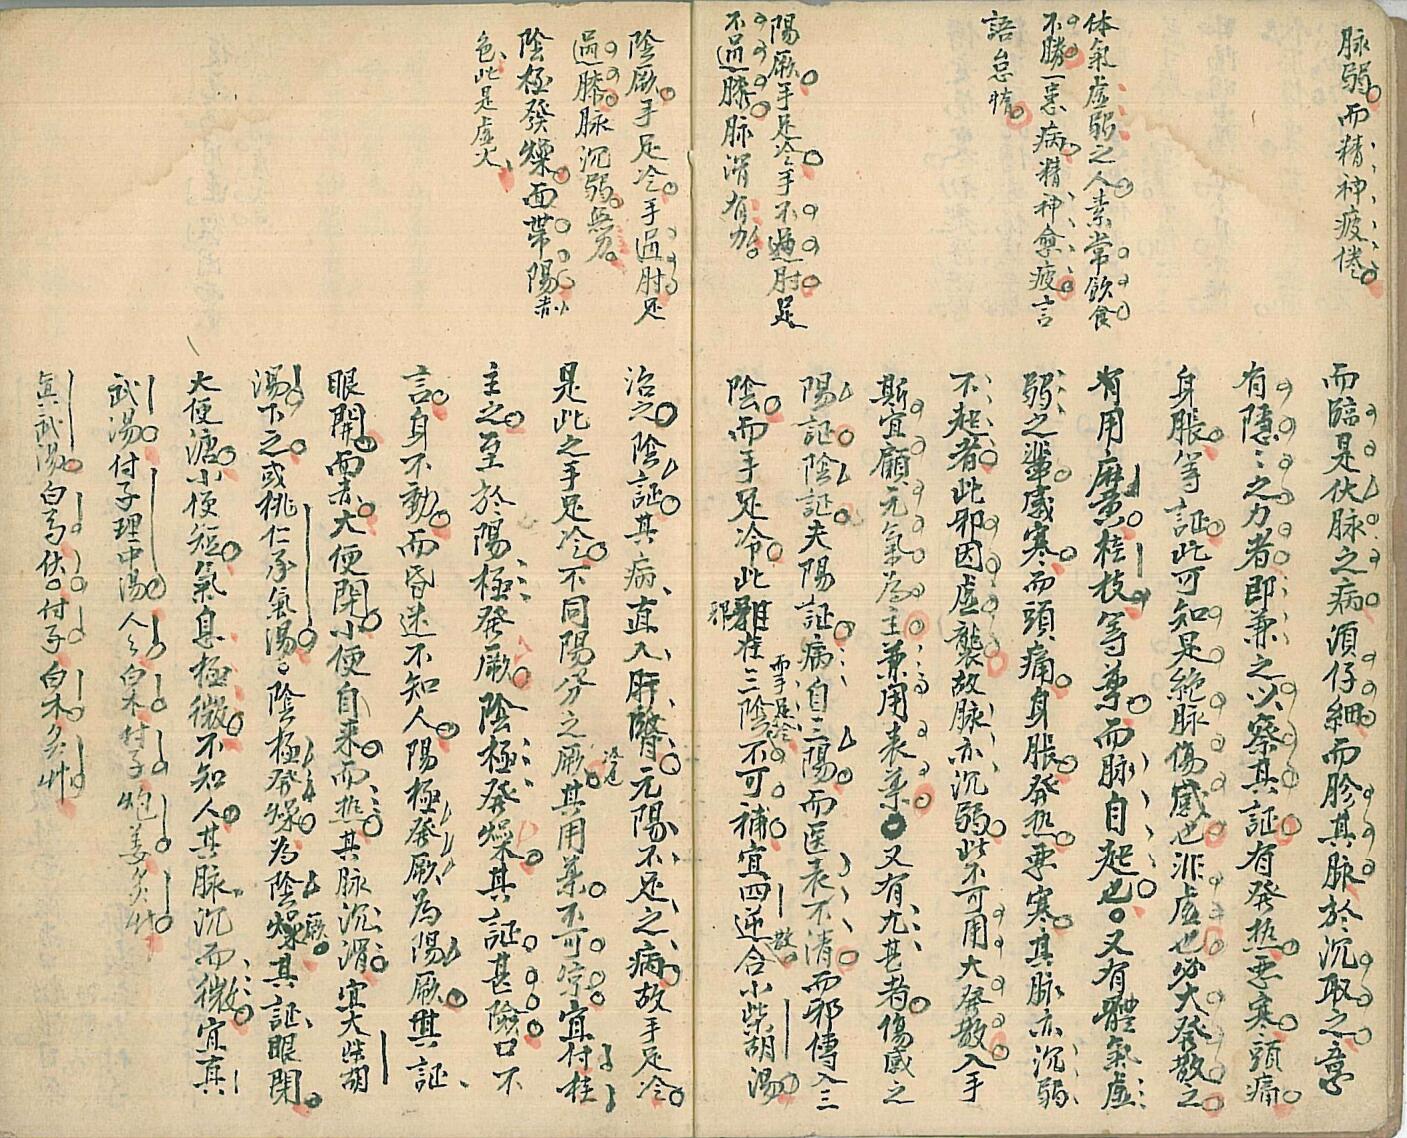 脉弱而精神疲倦
体氣虛弱之人素常飲食
不勝一患病精神愈疲言
語怠惰
陽厥手足冷手不過肘足
不過膝脉滑有力
陰厥手足冷手過肘足
過膝脉沉弱無力
陰極發燥面帶陽赤
色此是虛火
而臨是伏脉之病須仔細而胗其脉於沉取之意
有隱々之力者即兼之以察其証有發热惡寒頭痛
身脹等証此可知是絕脉傷感也非虛也必大發散之
有用麻黃桂枝等藥而脉自起也又有體氣虛
弱之輩感寒而頭痛身脹發热惡寒其脉亦沉弱
不起者此邪因虛襲故脉亦沉弱此不可用大發散入手
斯宜顧元氣為主兼用表藥又有尤甚者傷感之
陽証陰証夫陽証病自三陽而医表不清而邪傳入三
陰而手足冷此雖在三陰不可補宜四逆合小柴胡湯
而手足冷
散
治之陰証其病直入肝腎元陽不足之病故手足冷
是此之手足冷不同陽分之厥其用藥不可凉宜付桂
冷也
主之至於陽極發厥陰極發燥其証甚險口不
言身不動而昏迷不知人陽極發厥為陽厥其証
眼開而赤大便閉小便自来而热其脉沉滑宜大柴胡
湯下之或桃仁承氣湯陰極發燥為陰燥其証眼閉
厥
大便溏小便短氣息極微不知人其脉沉而微宜真
武湯付子理中湯人參白术付子炮姜炙艸
真武湯白芍伏付子白术炙艸